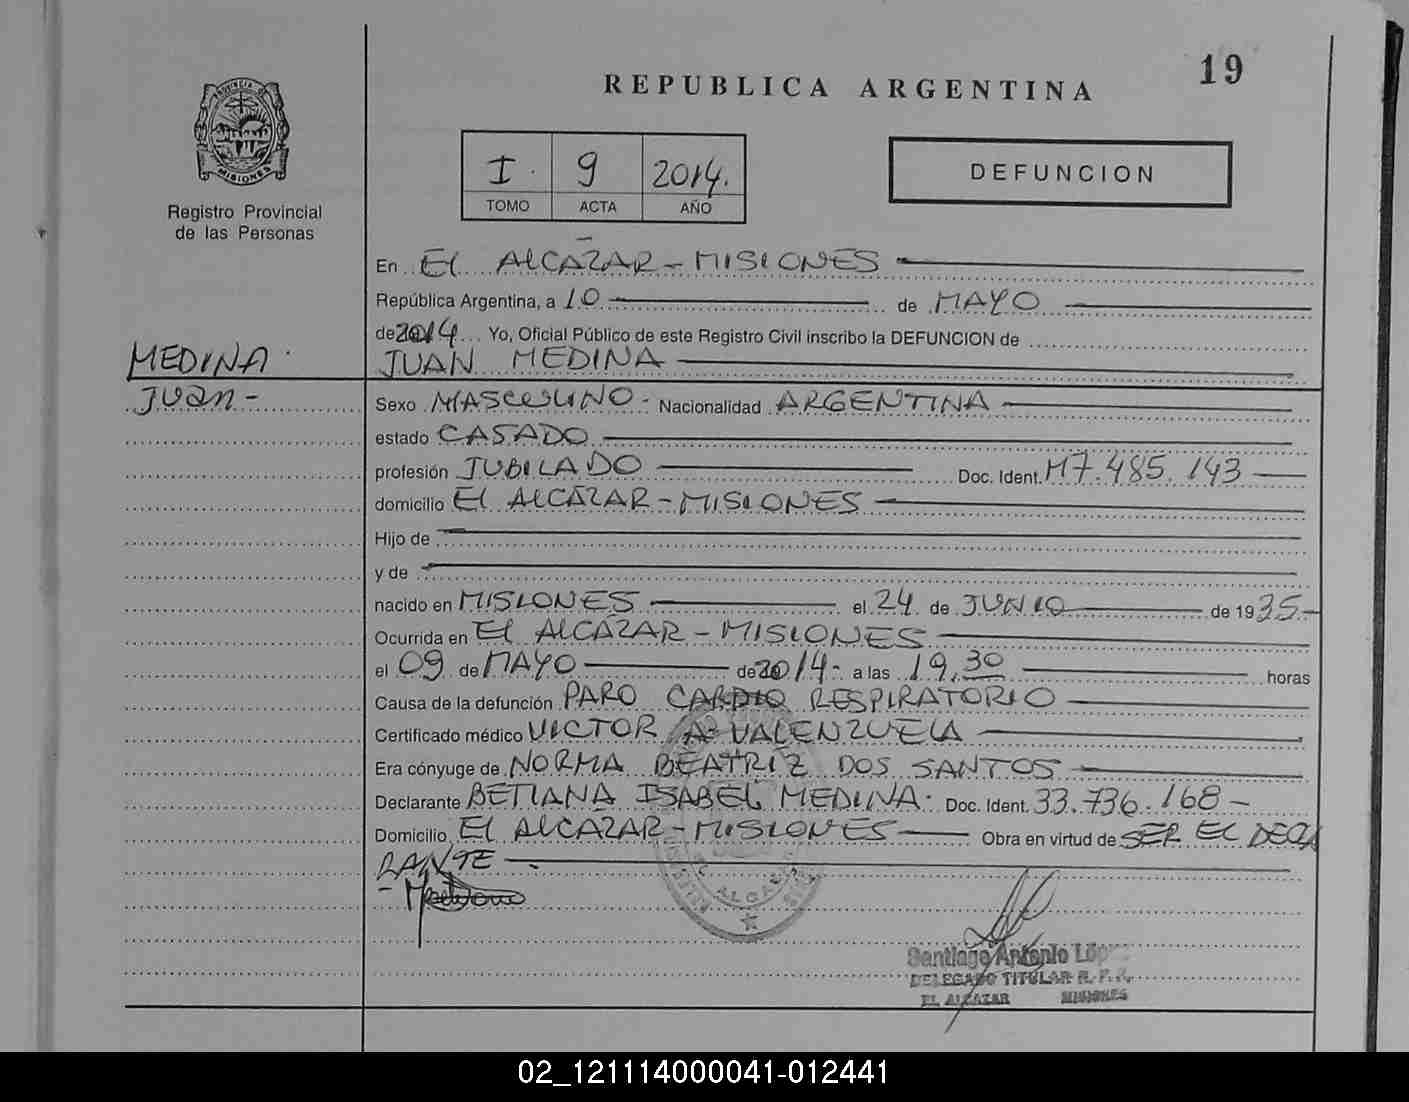 19
REPUBLICA ARGENTINA
PROVINCIA DE
MISIONES
Registro Provincial
de las Personas
I. 9 2014.
TOMO ACTA AÑO
DEFUNCION
En EL ALCAZAR - MISIONES
República Argentina, a 10 de MAYO
de 2014 Yo, Oficial Público de este Registro Civil inscribo la DEFUNCION de
MEDINA JUAN MEDINA
Juan - Sexo MASCULINO - Nacionalidad ARGENTINA
estado CASADO
profesión JUBILADO Doc. Ident. M7.485.143
domicilio EL ALCAZAR - MISIONES
Hijo de
y de
nacido en MISIONES el 24 de JUNIO de 1935-
Ocurrida en EL ALCAZAR - MISIONES
el 09 de MAYO de 2014- a las 19,30 horas
Causa de la defunción PARO CARDIO RESPIRATORIO
Certificado médico VICTOR A. VALENZUELA
Era cónyuge de NORMA BEATRIZ DOS SANTOS
Declarante BETIANA ISABEL MEDINA- Doc. Ident. 33.736.168-
Domicilio EL ALCAZAR - MISIONES Obra en virtud de SER EL DECLA
RANTE
Santiago Antonio López
DELEGADO TITULAR R. P. P.
EL ALCAZAR MISIONES
02_121114000041-012441